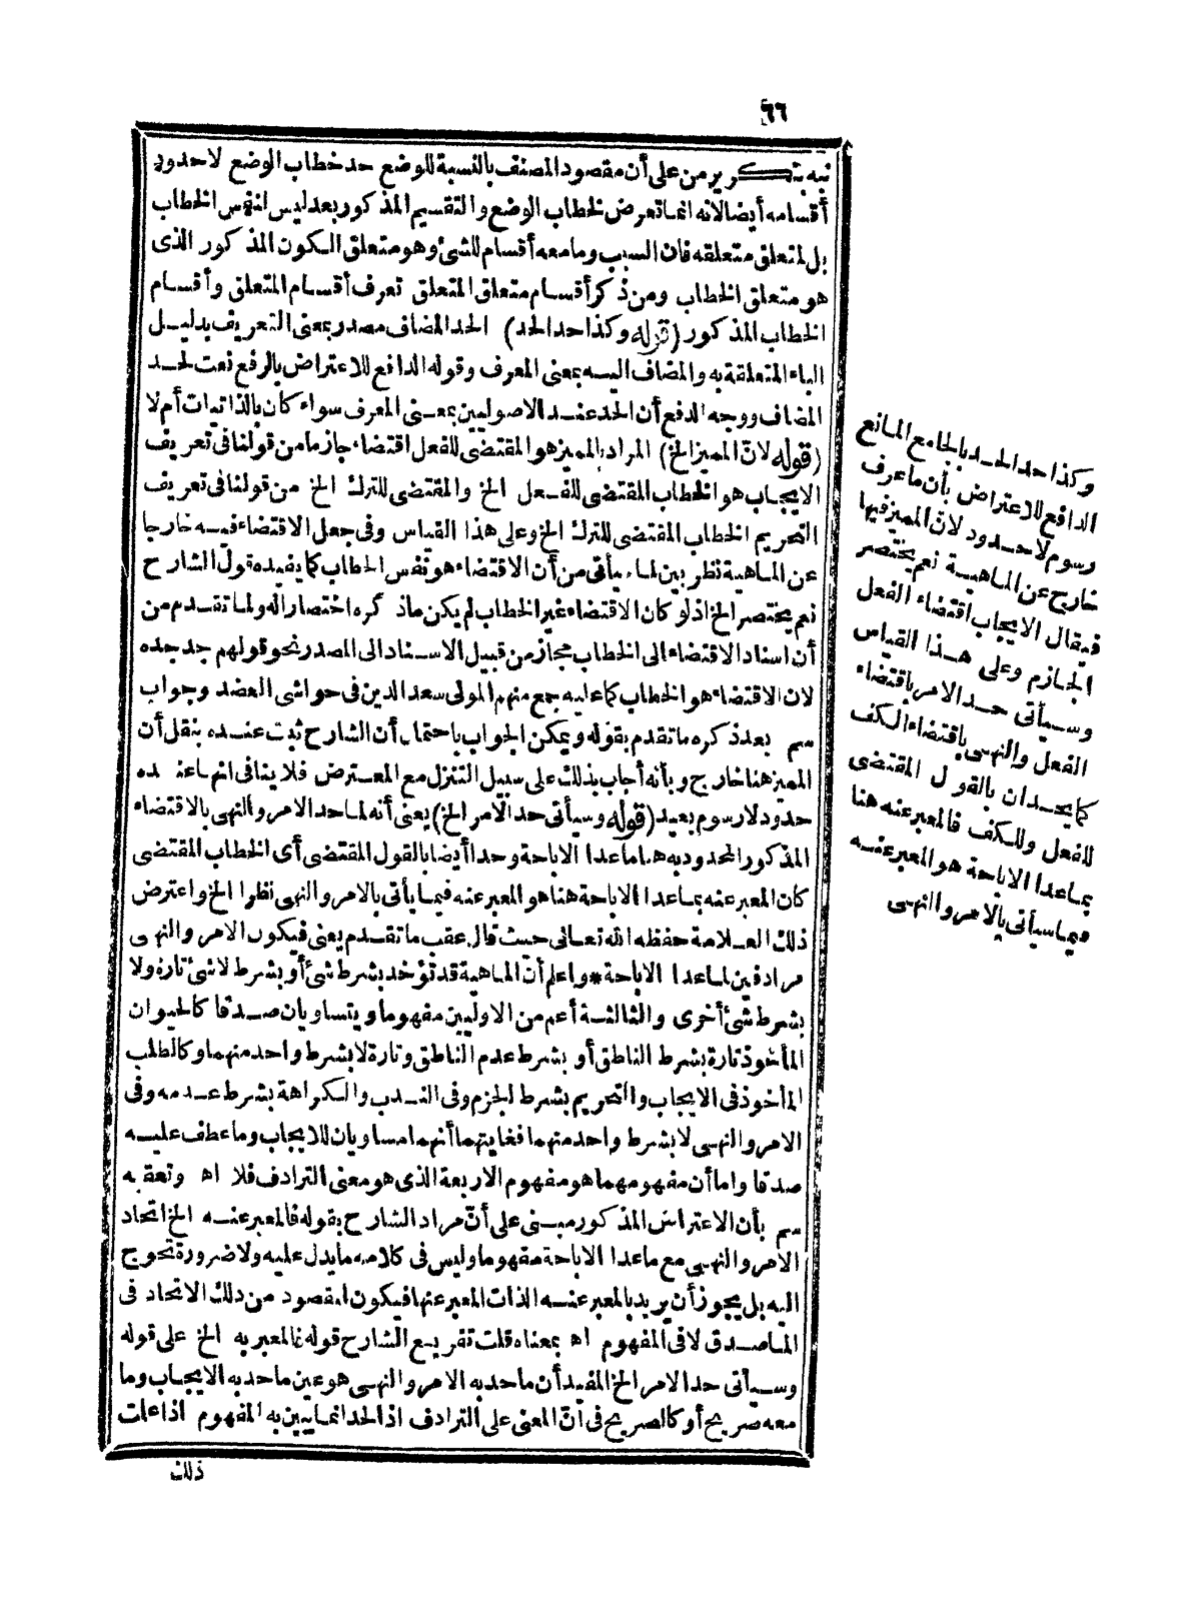 ٦٦
نبه بتكرير من على أن مقصود المصنف بالنسبة للوضع حد خطاب الوضع لا حدود
أقسامه أيضا لانه انما تعرض لخطاب الوضع والتقسيم المذكور بعد ليس لنفس الخطاب
بل لمتعلق متعلقه فان السبب وما معه أقسام للشئ وهو متعلق الكون المذكور الذى
هو متعلق الخطاب ومن ذكر أقسام متعلق المتعلق تعرف أقسام المتعلق وأقسام
الخطاب المذكور (قوله وكذا حد الحد) الحد المضاف مصدر بمعنى التعريف بدليل
الباء المتعلقة به والمضاف اليه بمعنى المعرف وقوله الدافع للاعتراض بالرفع نعت لحد
المضاف ووجه الدفع أن الحد عند الاصوليين بمعنى المعرف سواء كان بالذاتيات أم لا
(قوله لان المميز الخ) المراد بالمميز هو المقتضى للفعل اقتضاء جازما من قولنا فى تعريف
الايجاب هو الخطاب المقتضى للفعل الخ والمقتضى للترك الخ من قولنا فى تعريف
التحريم الخطاب المقتضى للترك الخ وعلى هذا القياس وفى جعل الاقتضاء فيه خارجا
عن الماهية نظر بين لما سيأتى من أن الاقتضاء هو نفس الخطاب كما يفيده قول الشارح
نعم يختصر الخ اذ لو كان الاقتضاء غير الخطاب لم يكن ما ذكره اختصارا له ولما تقدم من
أن اسناد الاقتضاء الى الخطاب مجاز من قبيل الاسناد الى المصدر نحو قولهم جد جده
لان الاقتضاء هو الخطاب كما عليه جمع منهم المولى سعد الدين فى حواشى العضد وجواب
سم بعد ذكره ما تقدم بقوله ويمكن الجواب باحتمال أن الشارح ثبت عنده بنقل أن
المميز هنا خارج وبأنه أجاب بذلك على سبيل التنزل مع المعترض فلا ينافى انها عنده
حدود لا رسوم بعيد (قوله وسيأتى حد الامر الخ) يعنى أنه لما حد الامر والنهى بالاقتضاء
المذكور المحدود به هنا ما عدا الاباحة وحدا أيضا بالقول المقتضى أى الخطاب المقتضى
كان المعبر عنه بما عدا الاباحة هنا هو المعبر عنه فيما يأتى بالامر والنهى نظرا الخ واعترض
ذلك العلامة حفظه الله تعالى حيث قال عقب ما تقدم يعنى فيكون الامر والنهى
مرادفين لما عدا الاباحة * واعلم أن الماهية قد تؤخذ بشرط شئ أو بشرط لا شئ تارة ولا
بشرط شئ أخرى والثالثة أعم من الاوليين مفهوما ويتساويان صدقا كالحيوان
المأخوذ تارة بشرط الناطق أو بشرط عدم الناطق وتارة لا بشرط واحد منهما وكالطلب
المأخوذ فى الايجاب والتحريم بشرط الجزم وفى الندب والكراهة بشرط عدمه وفى
الامر والنهى لا بشرط واحد منهما فغايتهما أنهما مساويان للايجاب وما عطف عليه
صدقا واما أن مفهومهما هو مفهوم الاربعة الذى هو معنى الترادف فلا اه وتعقبه
سم بأن الاعتراض المذكور مبنى على أن مراد الشارح بقوله فالمعبر عنه الخ اتحاد
الامر والنهى مع ما عدا الاباحة مفهوما وليس فى كلامه ما يدل عليه ولا ضرورة تحوج
اليه بل يجوز أن يريد بالمعبر عنه الذات المعبر عنها فيكون المقصود من ذلك الاتحاد فى
الماصدق لا فى المفهوم اه بمعناه قلت تفريع الشارح قوله فالمعبر به الخ على قوله
وسيأتى حد الامر الخ المفيد أن ما حد به الامر والنهى هو عين ما حد به الايجاب وما
معه صريح أو كالصريح فى أن المعنى على الترادف اذ الحد انما يبين به المفهوم اذا علمت
ذلك
وكذا حد الحد بالجامع المانع
الدافع للاعتراض بأن ما عرف
رسوم لا حدود لان المميز فيها
خارج عن الماهية نعم يختصر
فيقال الايجاب اقتضاء الفعل
الجازم وعلى هذا القياس
وسيأتى حد الامر باقتضاء
الفعل والنهى باقتضاء الكف
كما يحدان بالقول المقتضى
للفعل وللكف فالمعبر عنه هنا
بما عدا الاباحة هو المعبر عنه
فيما سيأتى بالامر والنهى